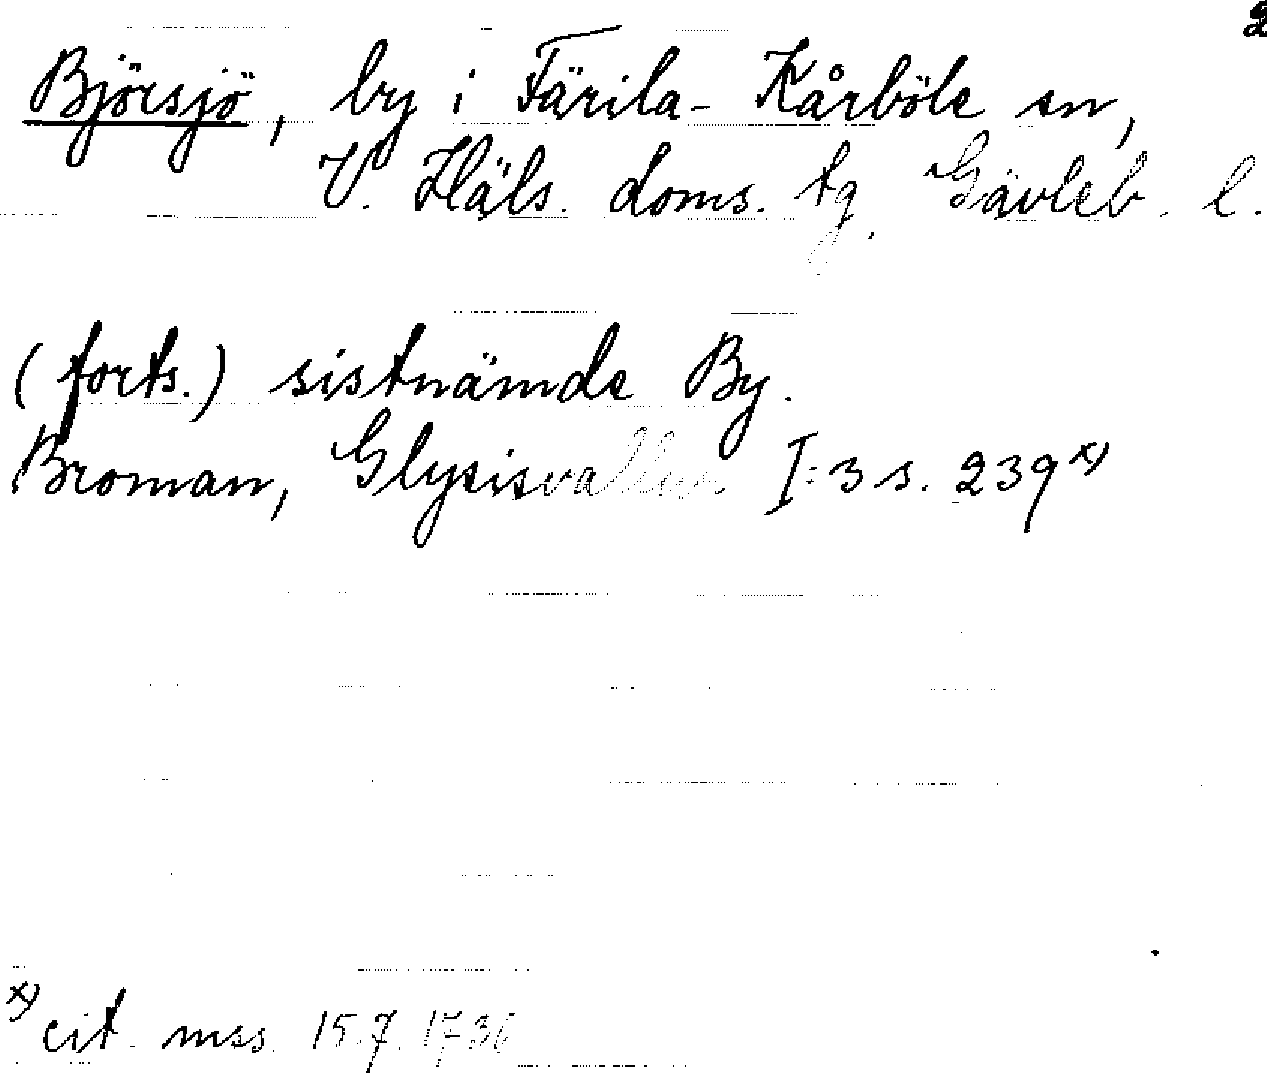 2
Björsjö, by i Färila-Kårböle sn,
V. Häls. doms. tg. Gävleb. l.
(forts.) sistnämde By.
Broman, Glysisvallur I:3 s. 239 x)
x) cit. mss. 15.7.1736